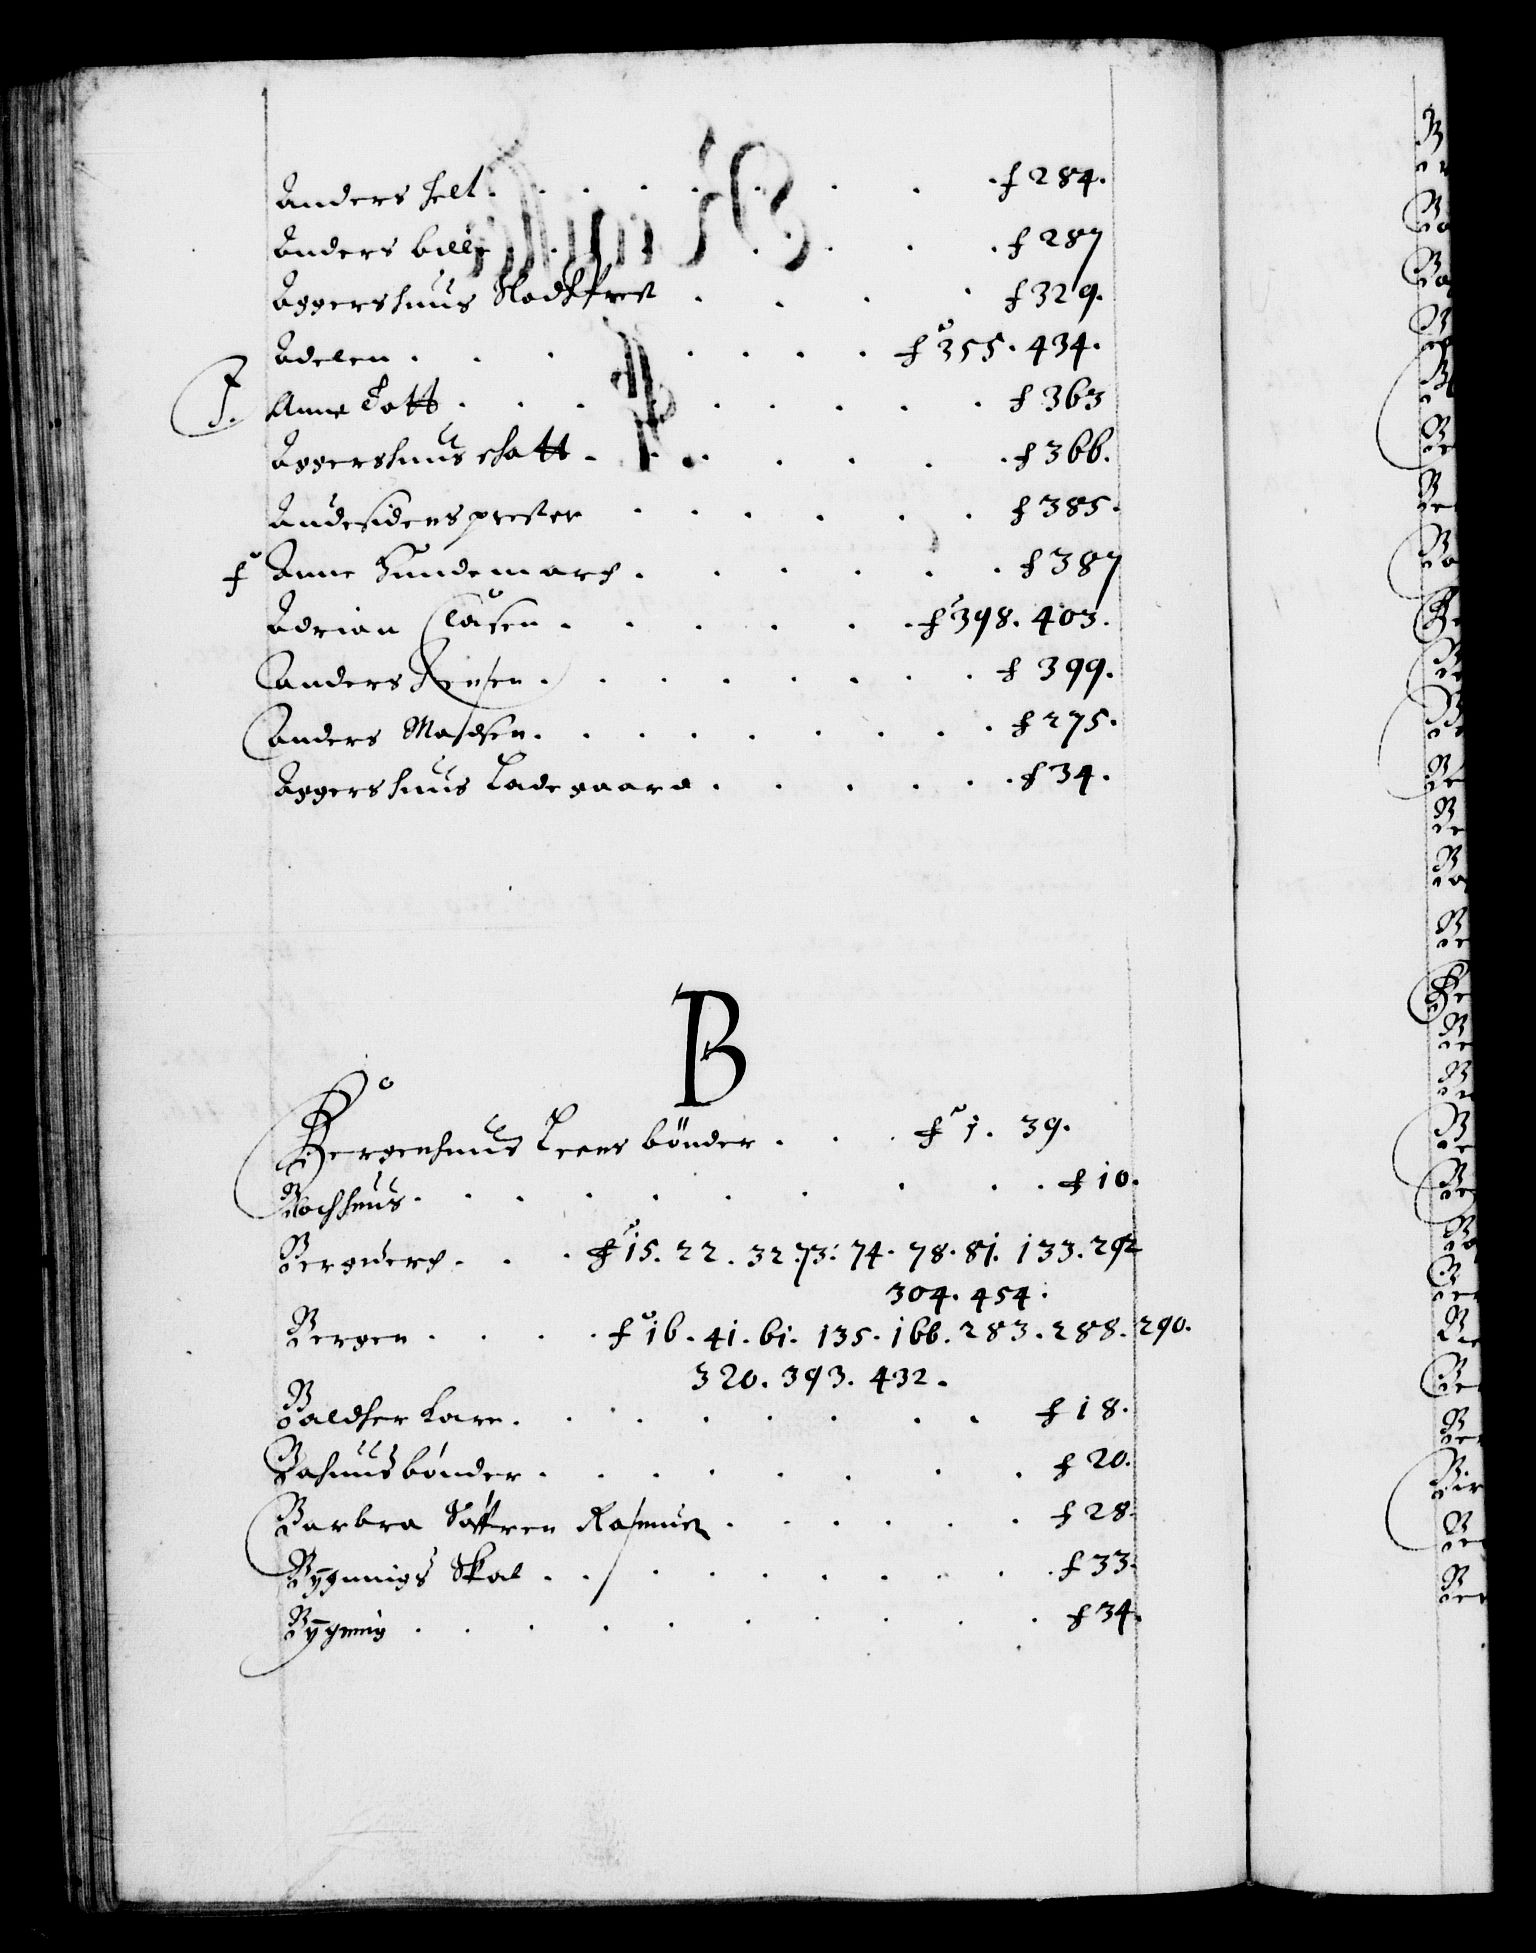 Anders felt . . . . . . . . f 284.
Anders bille . . . . . . f 287
Aggershuus Slodtzprest . . . . . f 329.
Adelen . . . . . . . . f 355. 434.
F. Anne Tott . . . . . . . . f 363
Aggershuus schatt . . . . . . f 366.
Andesidens prester . . . . . . f 385.
f Anne Hundemarch . . . . . . f 387
Adrian Clasen . . . . . . f 398. 403.
Anders Jensen . . . . . . . f 399.
Anders Madsen . . . . . . . . f 275.
Aggershuus Ladegaard . . . . . . f 34.
B
Bergenhuus Leens bönder . . . f 1. 39.
Bochhuus . . . . . . . . . . f 10.
Bergverch . . . f 15. 22. 32. 73. 74. 78. 81. 133. 292
304. 454.
Bergen . . . . f 16. 41. 61. 135. 166. 283. 288. 290.
320. 393. 432.
Baldser Lare . . . . . . . . f 18.
Bahuus bønder . . . . . . . f 20.
Barbra Rasmus . . . . . . f 28.
Bÿgnings Skat . . . . . . . . f 33.
Bÿgning . . . . . . . . . f 34.